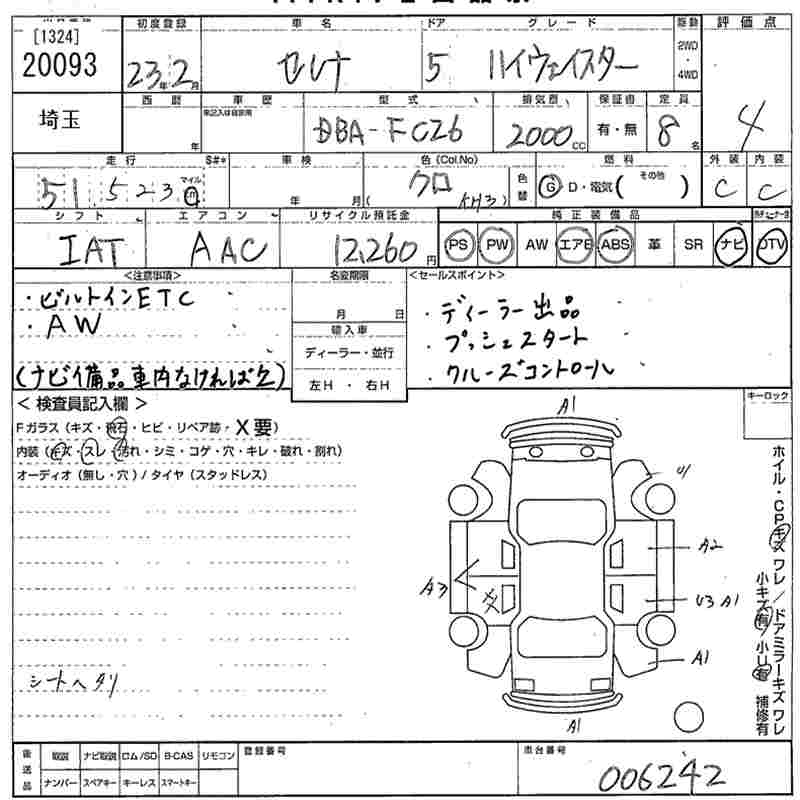 [1324]
20093
初度登録 車名 ドア グレード 駆動 評価点
23年2月 セレナ 5 ハイウェイスター 2WD・4WD 4
埼玉
西暦 車歴 型式 排気量 保証書 定員
年 DBA-FC26 2000cc 有・無 8名
走行 S#* 車検 色(Col.No) 燃料 外装 内装
51,523 マイル 年 月 クロ (KH3) 色替 G D・電気( その他 ) C C
シフト エアコン リサイクル預託金 純正装備品
IAT AAC 12,260円 PS PW AW エアB ABS 革 SR ナビ DTV
<注意事項> 名変期限 <セールスポイント>
・ビルトインETC
・AW
(ナビ備品車内なければ欠)
月 日
輸入車
ディーラー・並行
左H・右H
・ディーラー出品
・プッシュスタート
・クルーズコントロール
<検査員記入欄>
キーロック
Fガラス(キズ・飛石・ヒビ・リペア跡・X要)
内装(キズ・スレ・汚れ・シミ・コゲ・穴・キレ・破れ・割れ)
オーディオ(無し・穴)/タイヤ(スタッドレス)
A1
U1
A2
A3
U3 A1
A1
A1
シートヘタリ
ホイル・CPキズ ワレ/ドアミラーキズ ワレ
小キズ有/小U有 補修有
後送品 取説 ナビ取説 ロム/SD B-CAS リモコン 登録番号 車台番号
ナンバー スペアキー キーレス スマートキー
006242